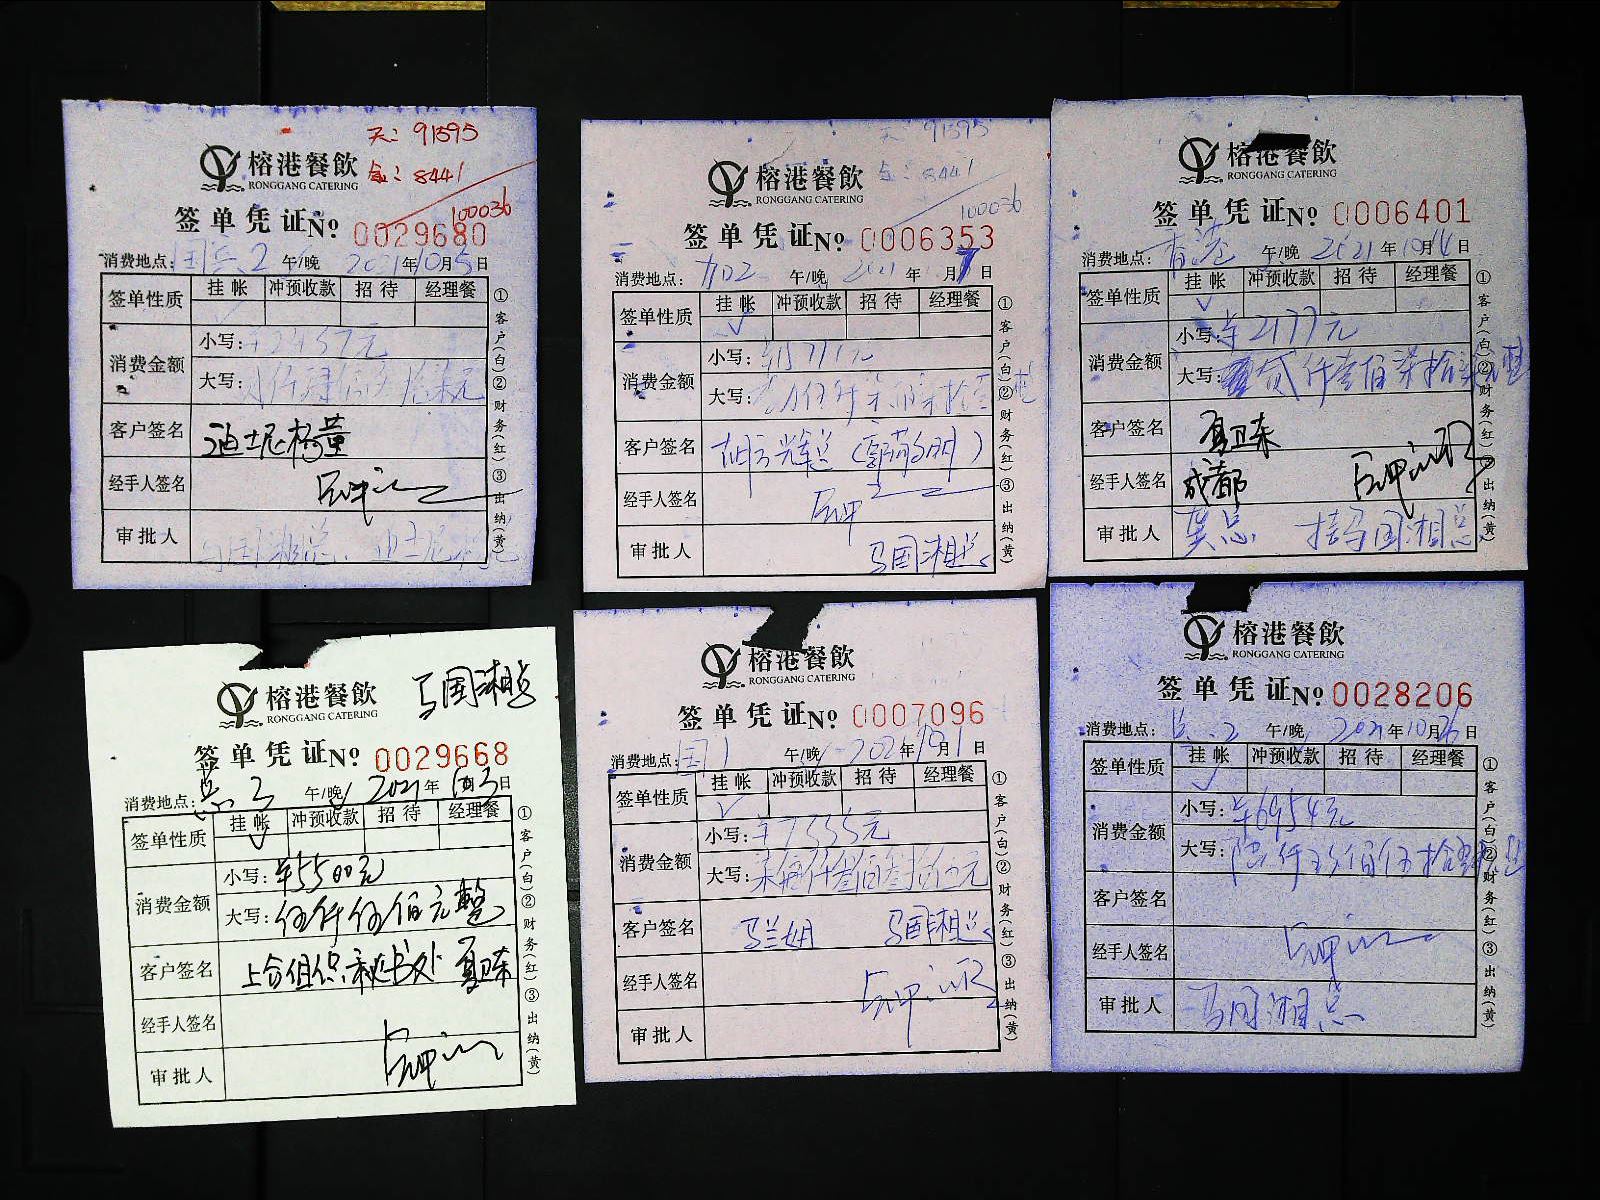 91595
8441
100036
榕港餐飲
RONGGANG CATERING
签单凭证№ 0029680
消费地点: 2 午/晚 2021年10月5日
签单性质 挂帐 冲预收款 招待 经理餐
消费金额 小写:
大写:
客户签名 迪士尼杨董
经手人签名
审批人
①客户(白)②财务(红)③出纳(黄)
91595
8441
100036
榕港餐飲
RONGGANG CATERING
签单凭证№ 0006353
消费地点: 午/晚 2021年 月7日
签单性质 挂帐 冲预收款 招待 经理餐
消费金额 小写:
大写:
客户签名
经手人签名
审批人 马国湘总
①客户(白)②财务(红)③出纳(黄)
榕港餐飲
RONGGANG CATERING
签单凭证№ 0006401
消费地点: 香港 午/晚 2021年10月14日
签单性质 挂帐 冲预收款 招待 经理餐
消费金额 小写: ¥2177元
大写: 贰仟壹佰柒拾柒元整
客户签名 夏卫东
经手人签名 成都
审批人 莫总 挂马国湘总
①客户(白)②财务(红)③出纳(黄)
马国湘总
榕港餐飲
RONGGANG CATERING
签单凭证№ 0029668
消费地点: 午/晚 2021年 日
签单性质 挂帐 冲预收款 招待 经理餐
消费金额 小写: ¥5500元
大写: 伍仟伍佰元整
客户签名 上合组织秘书处 夏卫东
经手人签名
审批人
①客户(白)②财务(红)③出纳(黄)
榕港餐飲
RONGGANG CATERING
签单凭证№ 0007096
消费地点: 国1 午/晚 2021年10月1日
签单性质 挂帐 冲预收款 招待 经理餐
消费金额 小写: ¥7335元
大写: 柒仟叁佰叁拾伍元
客户签名 马兰姐 马国湘总
经手人签名
审批人
①客户(白)②财务(红)③出纳(黄)
榕港餐飲
RONGGANG CATERING
签单凭证№ 0028206
消费地点: 2 午/晚 2021年10月26日
签单性质 挂帐 冲预收款 招待 经理餐
消费金额 小写: ¥6954元
大写: 陆仟玖佰伍拾肆元整
客户签名
经手人签名
审批人 马国湘总
①客户(白)②财务(红)③出纳(黄)